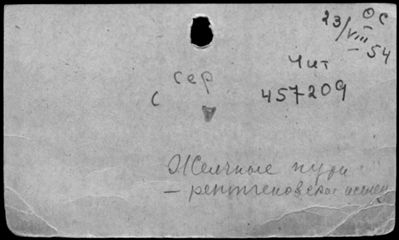 ОС
23/VIII-54
Чит
сер
с 457209
Желчные пути
– рентгеновское исслед